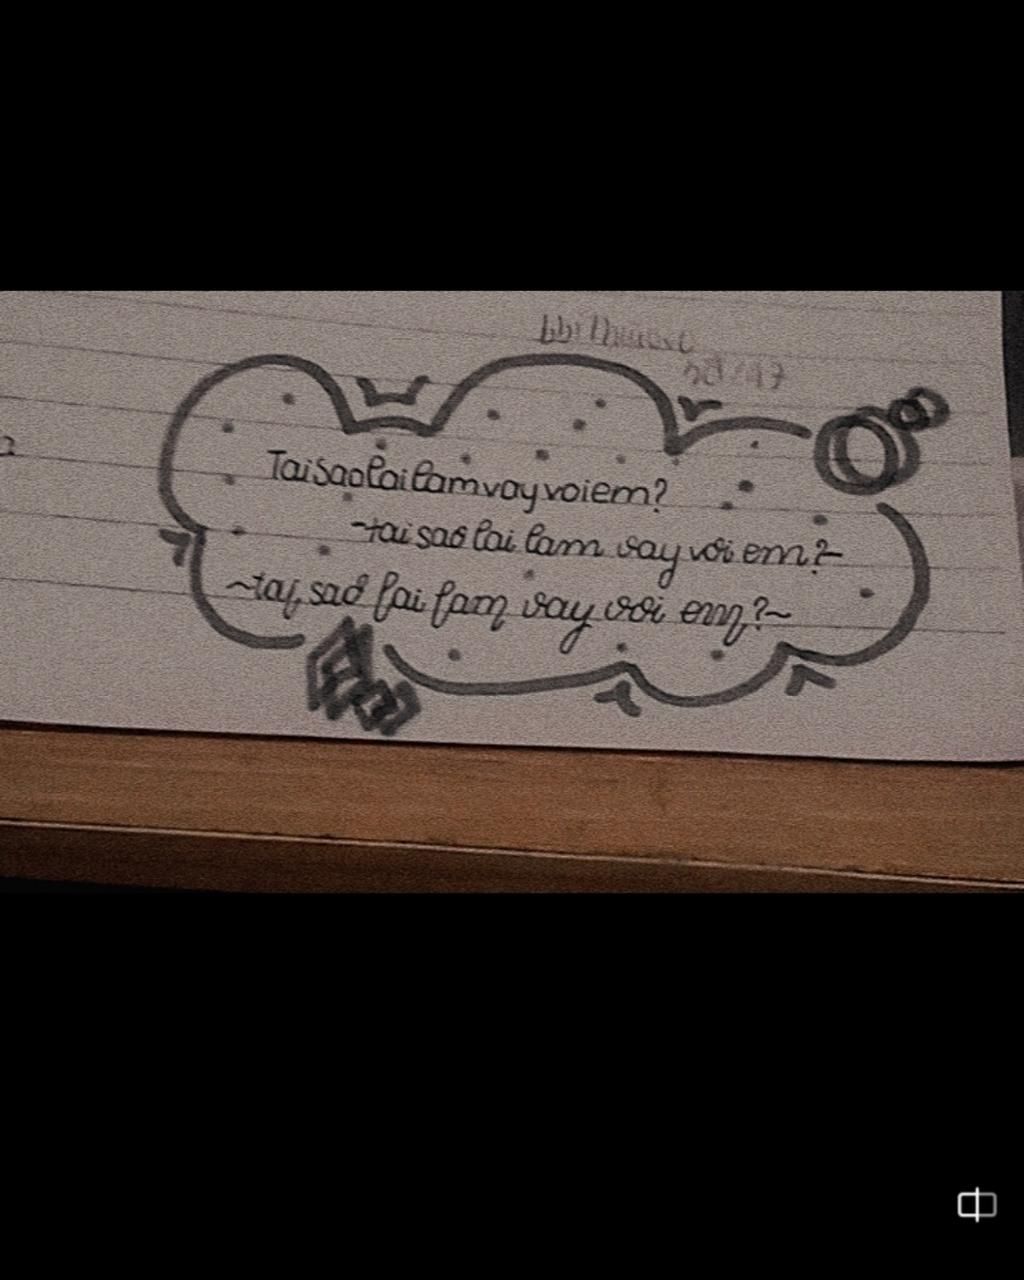 Taisaolailamvayvoiem?
-tai sao lai lam vay voi em?-
~tai sao lai lam vay voi em?~